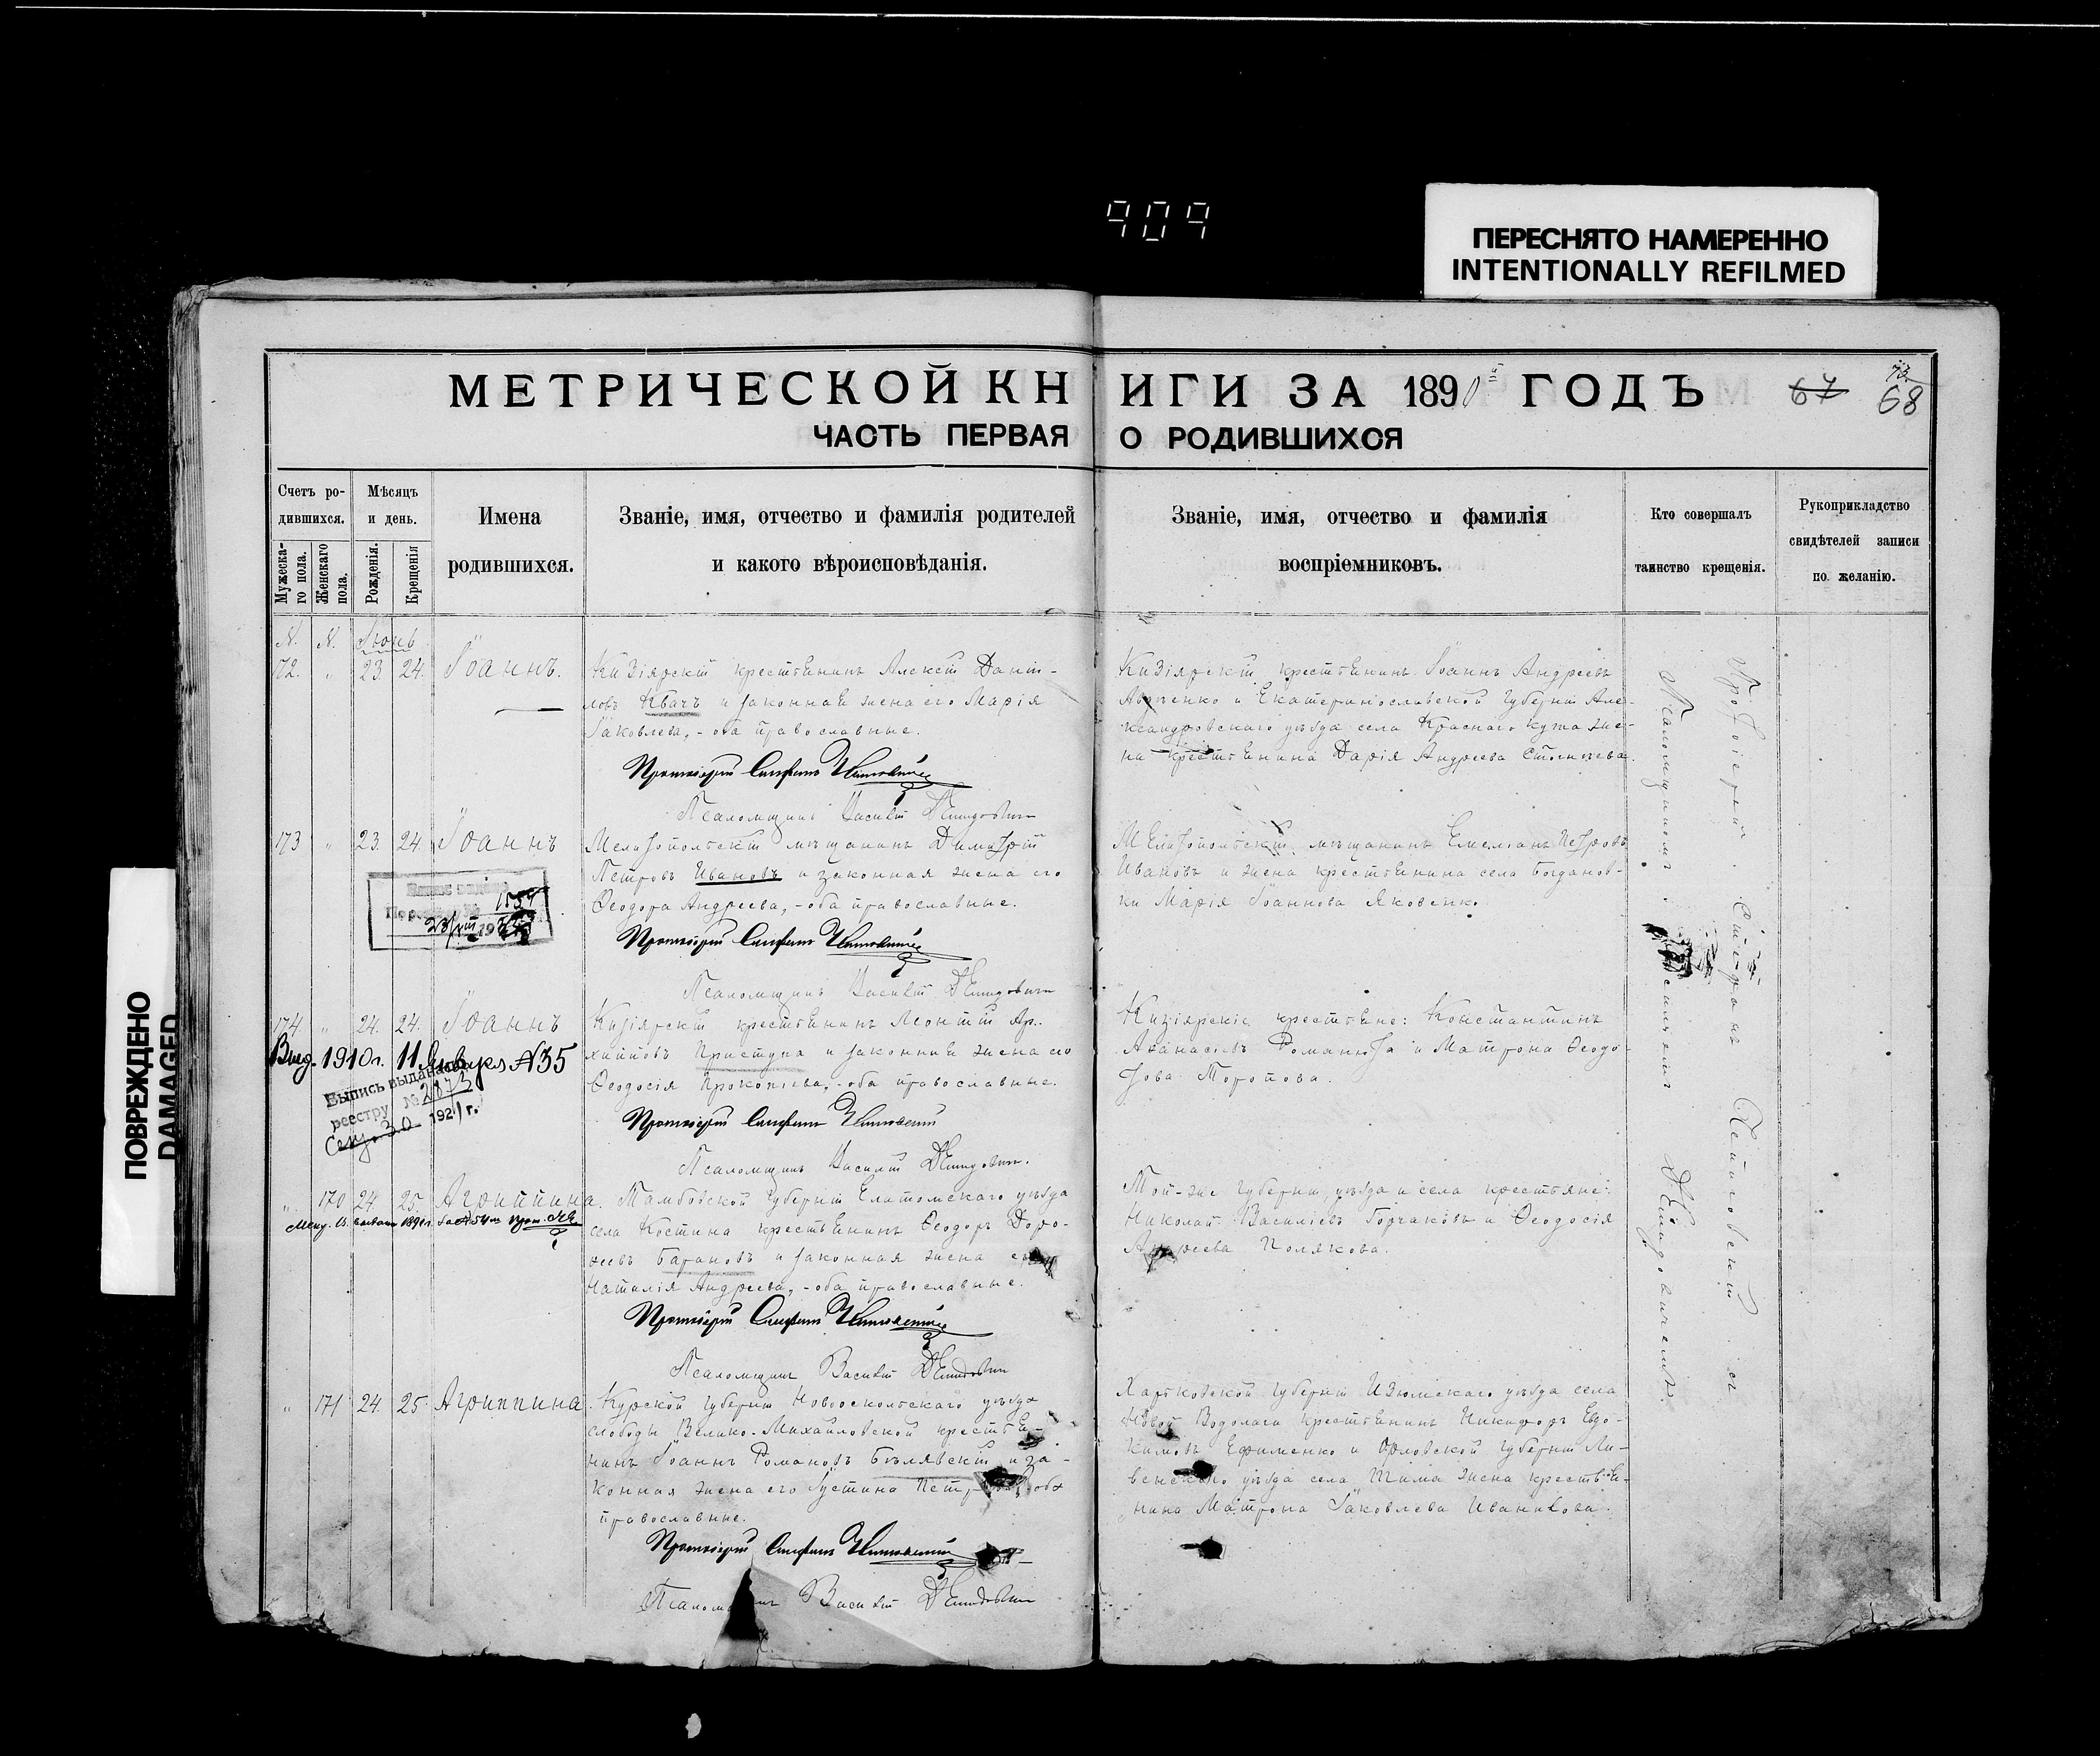 909
ПЕРЕСНЯТО НАМЕРЕННО
INTENTIONALLY REFILMED
ПОВРЕЖДЕНО
DAMAGED
МЕТРИЧЕСКОЙ КНИГИ ЗА 1890й ГОДЪ
67 68
ЧАСТЬ ПЕРВАЯ О РОДИВШИХСЯ
Счетъ ро-
дившихся.
Мужеска-
го пола.
Женскаго
пола.
Мѣсяцъ
и день.
Рожденія.
Крещенія
Имена
родившихся.
Званіе, имя, отчество и фамилія родителей
и какого вѣроисповѣданія.
Званіе, имя, отчество и фамилія
воспріемниковъ.
Кто совершалъ
таинство крещенія.
Рукоприкладство
свидѣтелей записи
по желанію.
N. N. Іюнь
172. " 23. 24. Іоаннъ.
Кизіярскій крестьянинъ Алексій Даніи-
ловъ Квачъ и законная жена его Марія
Іаковлева, - оба православные.
Протоіерей Стефанъ
Псаломщикъ Василій Демидовичъ
Кизіярскій крестьянинъ Іоаннъ Андреевъ
и Екатеринославской губерніи Але-
ксандровскаго уѣзда села Краснаго кута же-
на крестьянина Дарія Андреева
173 " 23. 24. Іоаннъ
Мелитопольскій мѣщанинъ Димитрій
Петровъ Ивановъ и законная жена его
Ѳеодора Андреева, - оба православные.
Протоіерей Стефанъ
Псаломщикъ Василій Демидовичъ
Мелитопольскій мѣщанинъ Емеліанъ Петровъ
Ивановъ и жена крестьянина села Богданов-
ки Марія Іоаннова Яковенко
174 " 24. 24. Іоаннъ
Кизіярскій крестьянинъ Леонтій Ар-
хиповъ Приступа и законная жена его
Ѳеодосія Прокопіева, - оба православные.
Протоіерей Стефанъ
Псаломщикъ Василій Демидовичъ.
Кизіярскіе крестьяне: Константинъ
Аѳанасіевъ Романюта и Матрона Ѳеодо-
това Торопова.
1910 г. 11 Января № 35
Выпись выдана
реестру №
30 1921 г.
" 170 24. 25. Агриппина.
Тамбовской губерніи Елатомскаго уѣзда
села Костина крестьянинъ Ѳеодоръ Доро-
ѳеевъ Барановъ и законная жена его
Наталія Андреева, - оба православные.
Протоіерей Стефанъ
Псаломщикъ Василій Демидовичъ
Той-же губерніи, уѣзда и села крестьяне:
Николай Василіевъ Горчаковъ и Ѳеодосія
Андреева Полякова.
" 171 24. 25. Агриппина.
Курской губерніи Новооскольскаго уѣзда
слободы Велико-Михайловской крестья-
нинъ Іоаннъ Романовъ Бѣлявскій и за-
конная жена его Іустина оба
православные.
Протоіерей Стефанъ
Псаломщикъ Василій Демидовичъ
Харьковской губерніи Изюмскаго уѣзда села
Новой Водолаги крестьянинъ Никифоръ Евдо-
кимовъ Ефименко и Орловской губерніи Ли-
венскаго уѣзда села Тима жена крестья-
нина Матрона Іаковлева Иванкова.
Протоіерей Стефанъ съ
Псаломщикомъ Василіемъ Демидовичемъ.